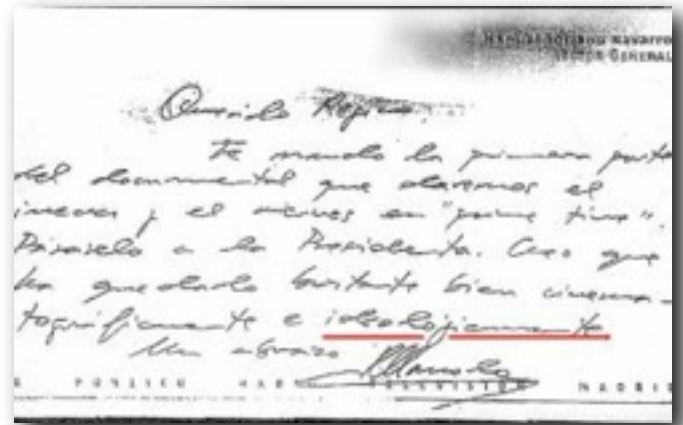 Navarro
GENERAL
Querido
Te mando la primera parte
del documental que daremos el
jueves y el viernes en "prime time".
Pásaselo a la Presidenta. Creo que
ha quedado bastante bien cinema-
tográficamente e ideolojicamente
Un abrazo
MADRID